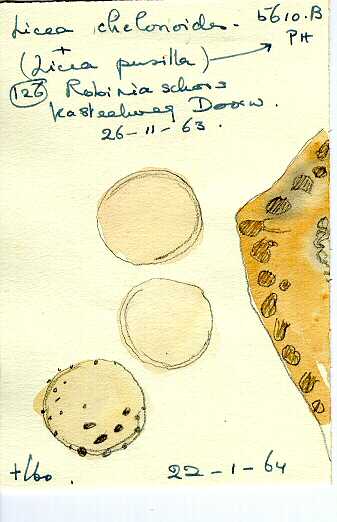 Licea chelonoides. 5610.B
+ PH
(Licea pusilla) →
(126) Robinia schors
Kasteelweg Doorw.
26-11-63.
22-1-64